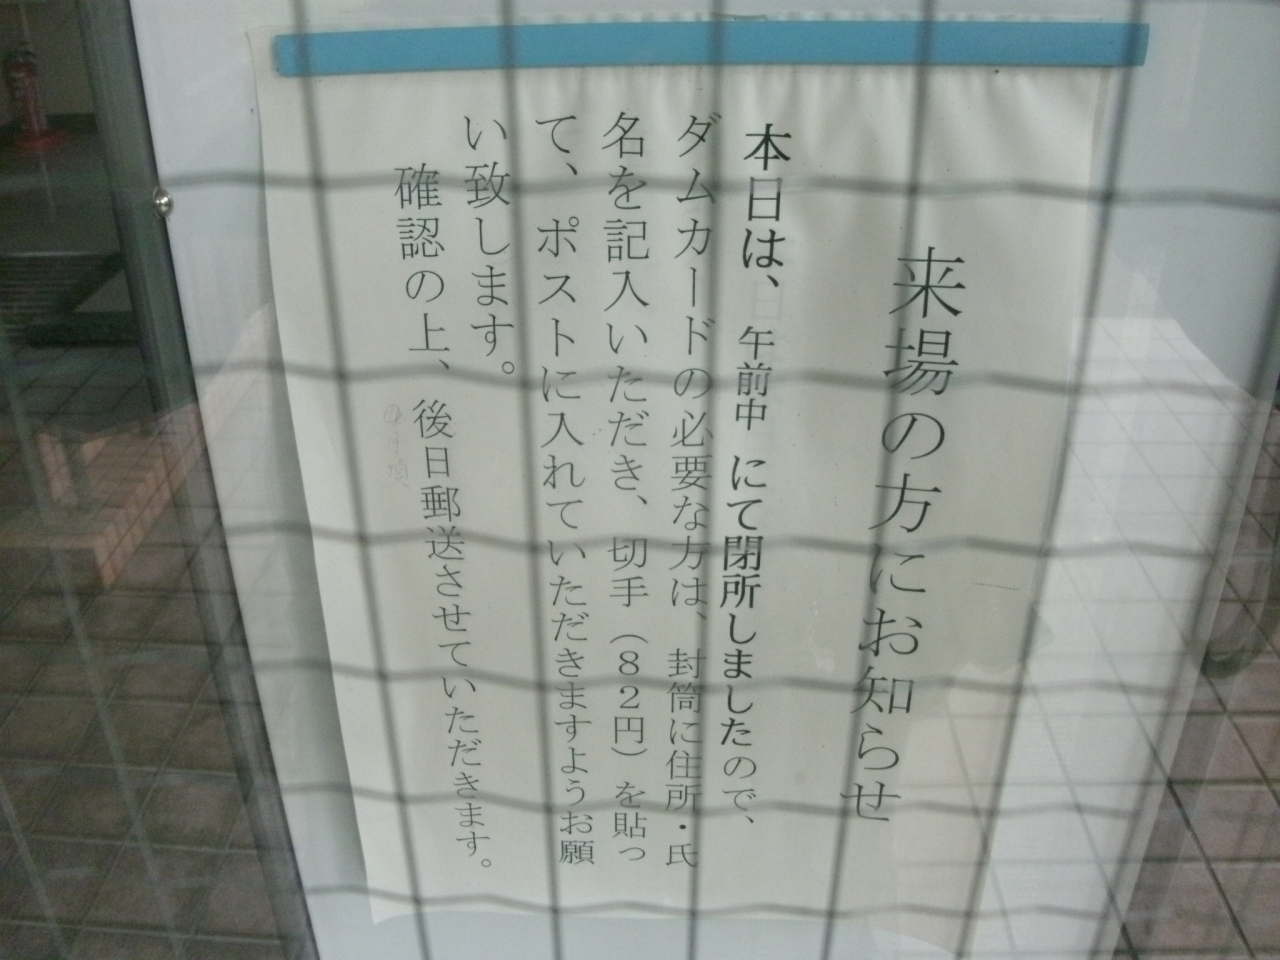 来場の方にお知らせ
本日は、午前中にて閉所しましたので、
ダムカードの必要な方は、封筒に住所・氏
名を記入いただき、切手（８２円）を貼っ
て、ポストに入れていただきますようお願
い致します。
確認の上、後日郵送させていただきます。